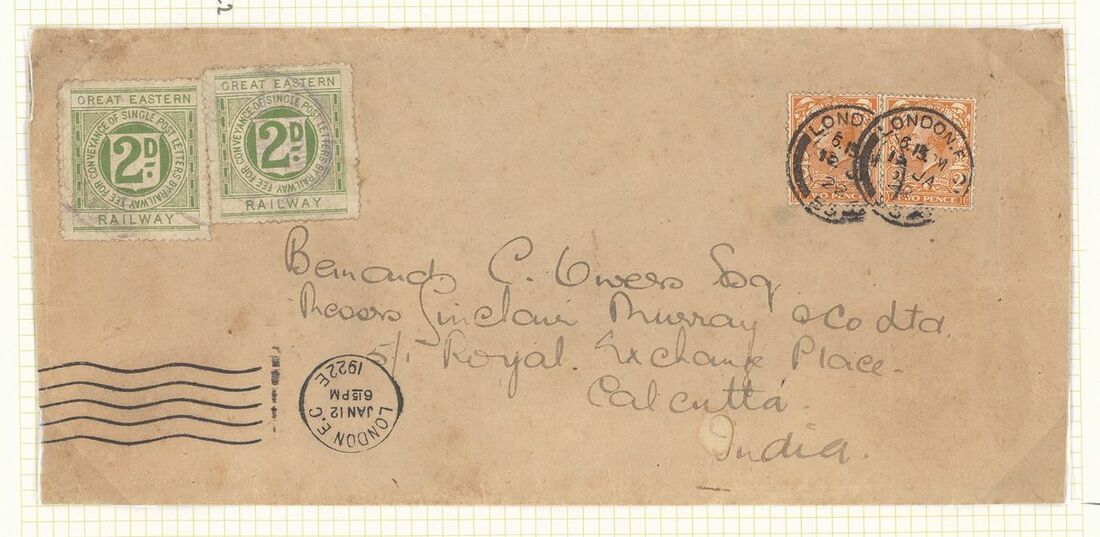 GREAT EASTERN
FEE FOR CONVEYANCE OF SINGLE POST LETTERS BY RAILWAY
2D
RAILWAY
GREAT EASTERN
FEE FOR CONVEYANCE OF SINGLE POST LETTERS BY RAILWAY
2D
RAILWAY
LOND
6.15
12 J
22
LONDON.E
6.15PM
12 JA
22
TWO PENCE
Bernard C. Owers Esq
Messrs Sinclair Murray & Co Ltd
5/1 Royal Exchange Place.
Calcutta.
India.
LONDON.E.C
JAN 12
615PM
1922E